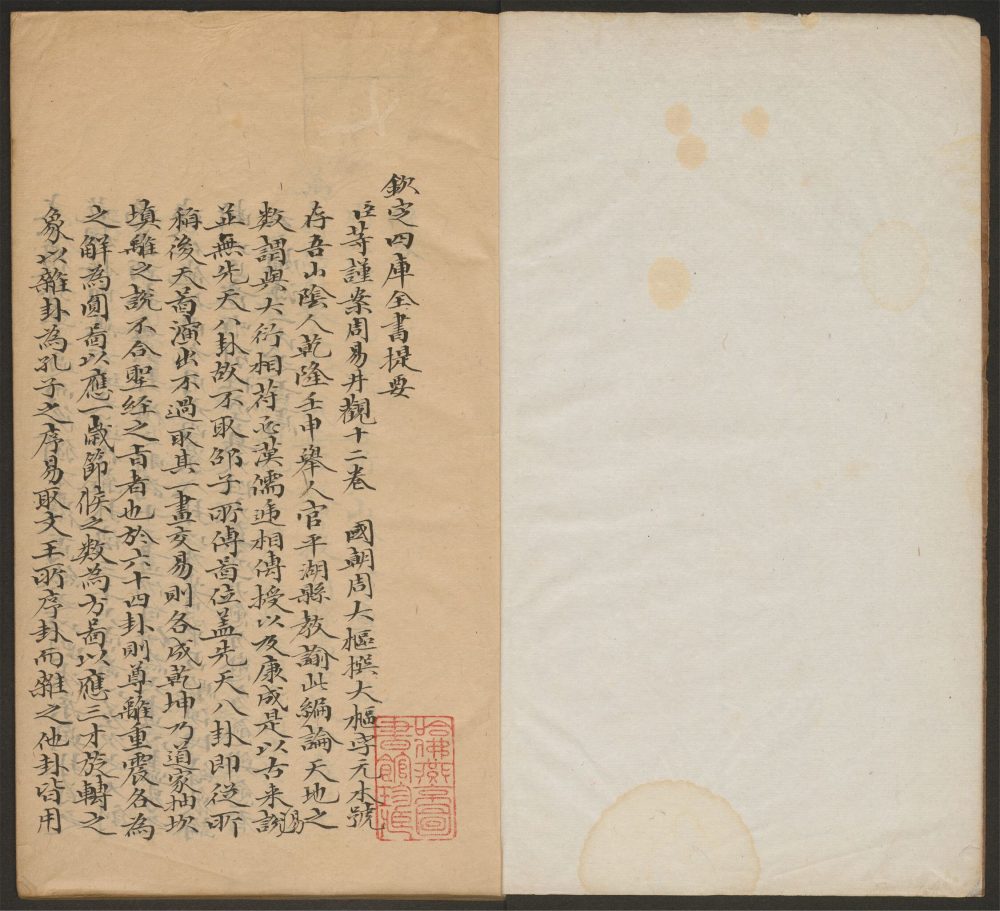 欽定四庫全書提要
臣等謹案周易井觀十二卷　國朝周大樞撰大樞字元木號
存吾山陰人乾隆壬申舉人官平湖縣教諭此編論天地之
數謂與大衍相符必漢儒遞相傳授以及康成是以古来說易
並無先天八卦故不取邵子所傳啚位盖先天八卦即從所
稱後天啚演出不過取其一畫交易則各成乾坤乃道家抽坎
填離之說不合聖经之旨者也於六十四卦則尊離重震各為
之解為圓啚以應一歲節候之数為方啚以應三才於轉之
象以雜卦為孔子之序易取文王所序卦而雜之他卦皆用
哈佛燕京圖
書館珍藏